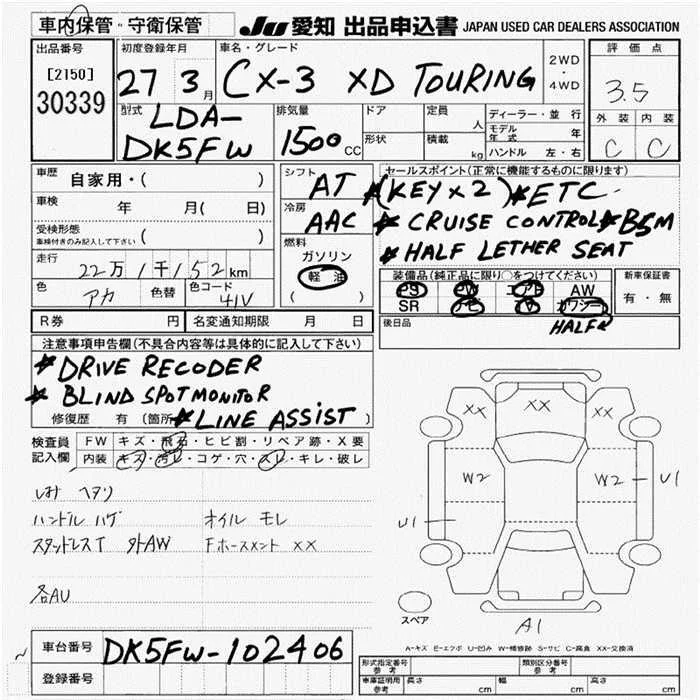 車内保管・守衛保管
JU 愛知 出品申込書 JAPAN USED CAR DEALERS ASSOCIATION
出品番号
[2150]
30339
初度登録年月
27 3月
車名・グレード
CX-3 XD TOURING
2WD
・
4WD
評価点
3.5
外装 内装
C C
型式
LDA-
DK5FW
排気量
1500cc
ドア
形状
定員 人
積載 kg
ディーラー・並行
モデル年式 年
ハンドル 左・右
車歴 自家用・( )
車検 年 月( 日)
受検形態
車検付きのみ記入して下さい ( )
走行 22万1千152km
色 アカ 色替 色コード 41V
シフト AT
冷房 AAC
燃料
ガソリン
軽油
( )
セールスポイント(正常に機能するものに限ります)
*(KEY×2) *ETC
* CRUISE CONTROL * BSM
* HALF LETHER SEAT
装備品(純正品に限り○をつけてください)
PS PW エアB AW
SR ナビ TV カワシート
HALF
新車保証書
有・無
後日品
R券 円 名変通知期限 月 日
注意事項申告欄(不具合内容等は具体的に記入して下さい)
* DRIVE RECODER
* BLIND SPOT MONITOR
修復歴 有 (箇所 * LINE ASSIST )
検査員記入欄
FW キズ・飛石・ヒビ割・リペア跡・X要
内装 キズ・汚レ・コゲ・穴・スレ・キレ・破レ
ハンドル ハゲ オイル モレ
スタッドレスT 外AW Fホースメント XX
各AU
XX XX XX
W2 W2 U1
U1
スペア
A1
A-キズ E-エクボ U-凹み W-補修跡 S-サビ C-腐食 XX-交換済
車台番号 DK5FW-102406
登録番号
形式指定番号 参考 類別区分番号 参考
車庫証明用 参考 長さ cm 幅 cm 高さ cm